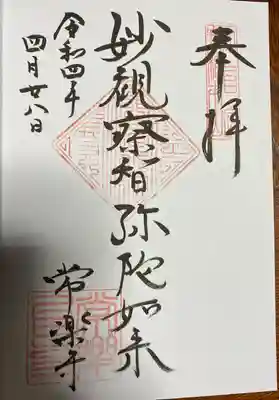 奉拝
妙観察智弥陀如来
常楽寺
令和四年
四月廿八日